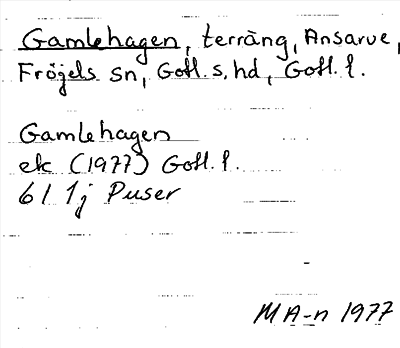 Gamlehagen, terräng, Ansarve,
Fröjels sn, Gotl. s. hd, Gotl. l.
Gamlehagen
ek (1977) Gotl. l.
6I 1j Puser
MA-n 1977